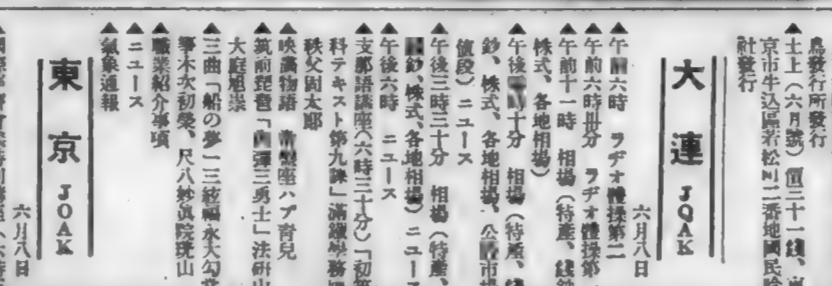 鳥發行所發行
▲土上(六月號)價三十一錢、
京市牛込區若松町二番地國民
社發行
大連 JQAK
六月八日
六時 ラヂオ體操第二
▲午前六時卅分 ラヂオ體操第
▲午前十一時 相場(特産、錢鈔
株式、各地相場)
▲午後 十分 相場(特産、錢
鈔、株式、各地相場、公 市場
値段)ニュース
▲午後三時三十分 相場(特産、
鈔、株式、各地相場)ニュース
▲午後六時 ニュース
支那語講座(六時三十分)「初等
科テキスト第九課」滿鐵學務
秩父固太郎
▲映畫物語 座ハブ育兒
▲筑前琵琶「 彈三勇士」法研山
大庭旭崇
▲三曲「船の夢」三絃福永大勾當
箏木次初榮、尺八妙眞院琥山
▲職業紹介事項
▲ニュース
▲氣象通報
東京 JOAK
六月八日